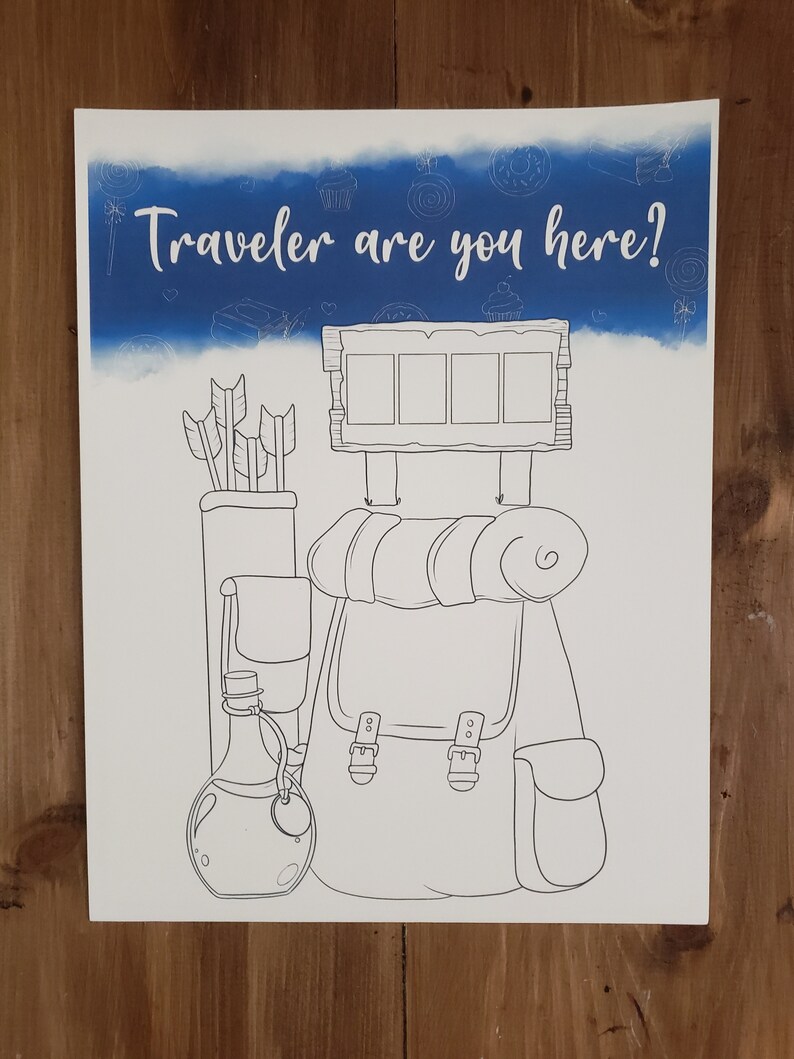 Traveler are you here?